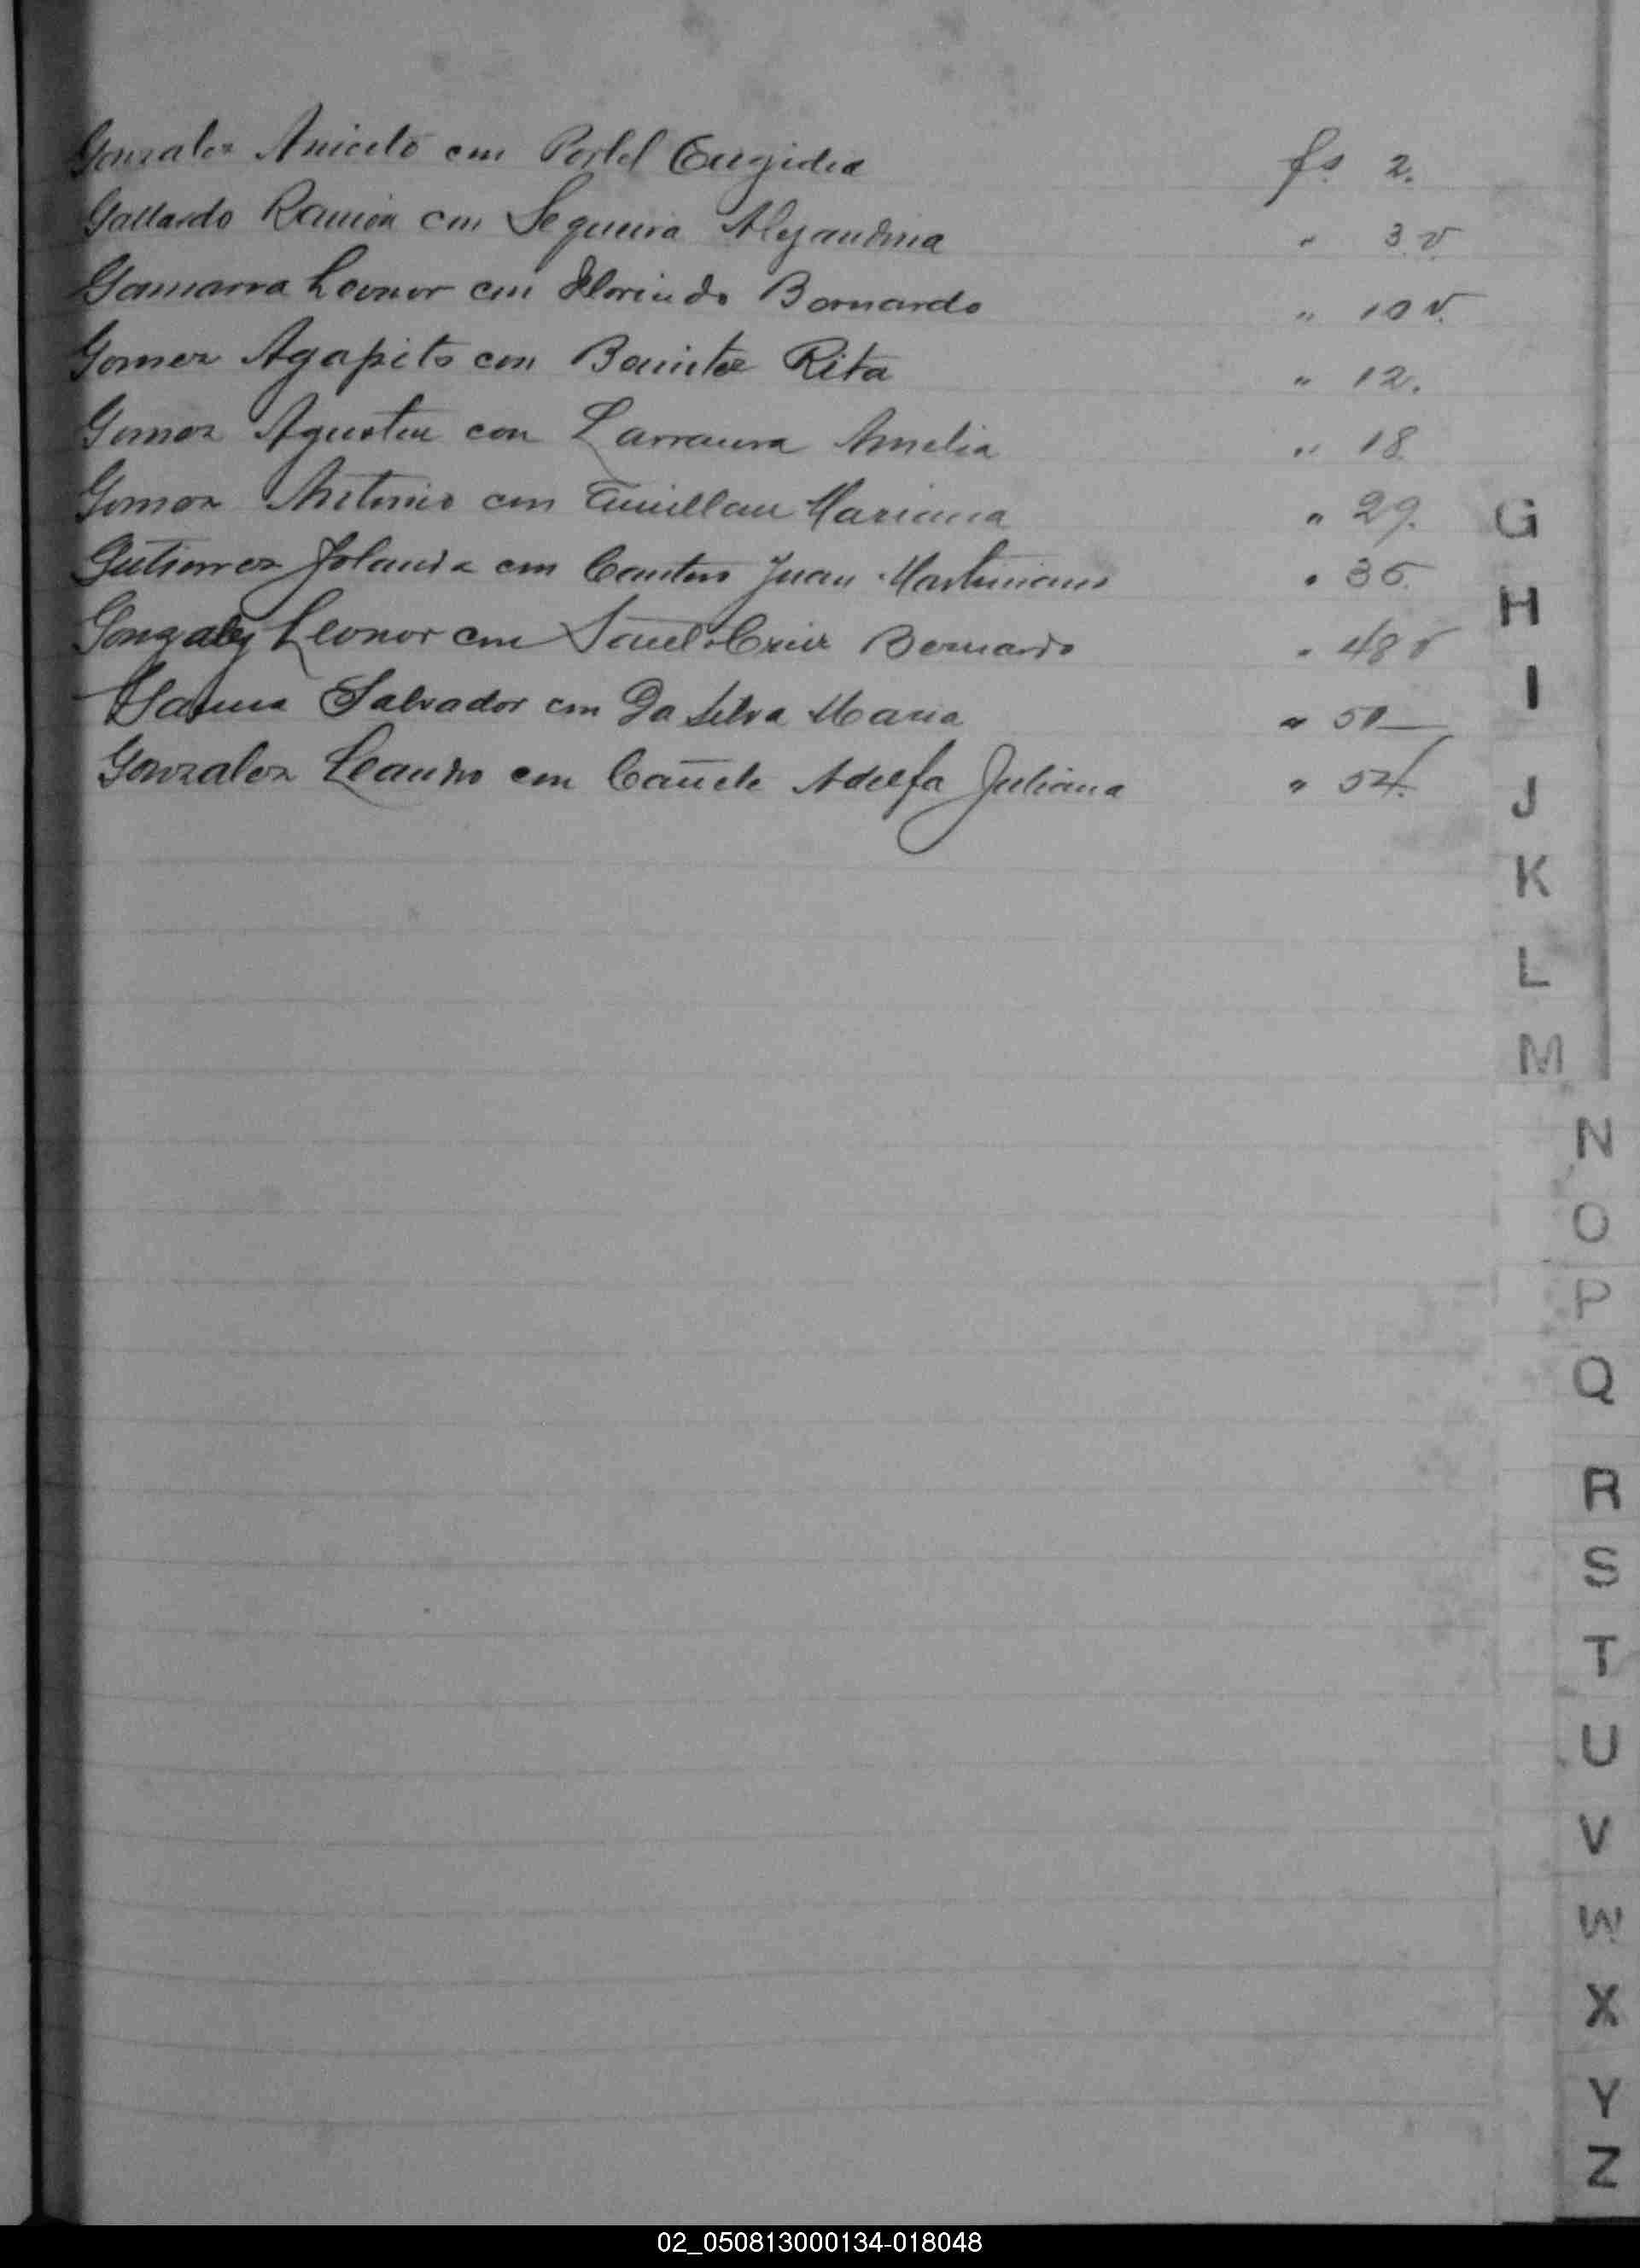 Gonzalez Aniceto con Portel Eugidia fs. 2.
Gallardo Ramón con Sequeira Alejandrina " 3 v.
Gamarra Leonor con Florindo Bernardo " 10 v.
Gomez Agapito con Benitez Rita " 12.
Gomez Agustin con Larraura Amelia " 18
Gomez Antonio con Mariana " 29.
Gutierrez Yolanda con Cantero Juan Martiniano " 36.
Gonzalez Leonor con Cruz Bernardo " 48 v
Salvador con Da Silva Maria " 50
Gonzalez Leandro con Cañete Adelfa Juliana " 54.
G
H
I
J
K
L
M
N
O
P
Q
R
S
T
U
V
W
X
Y
Z
02_050813000134-018048